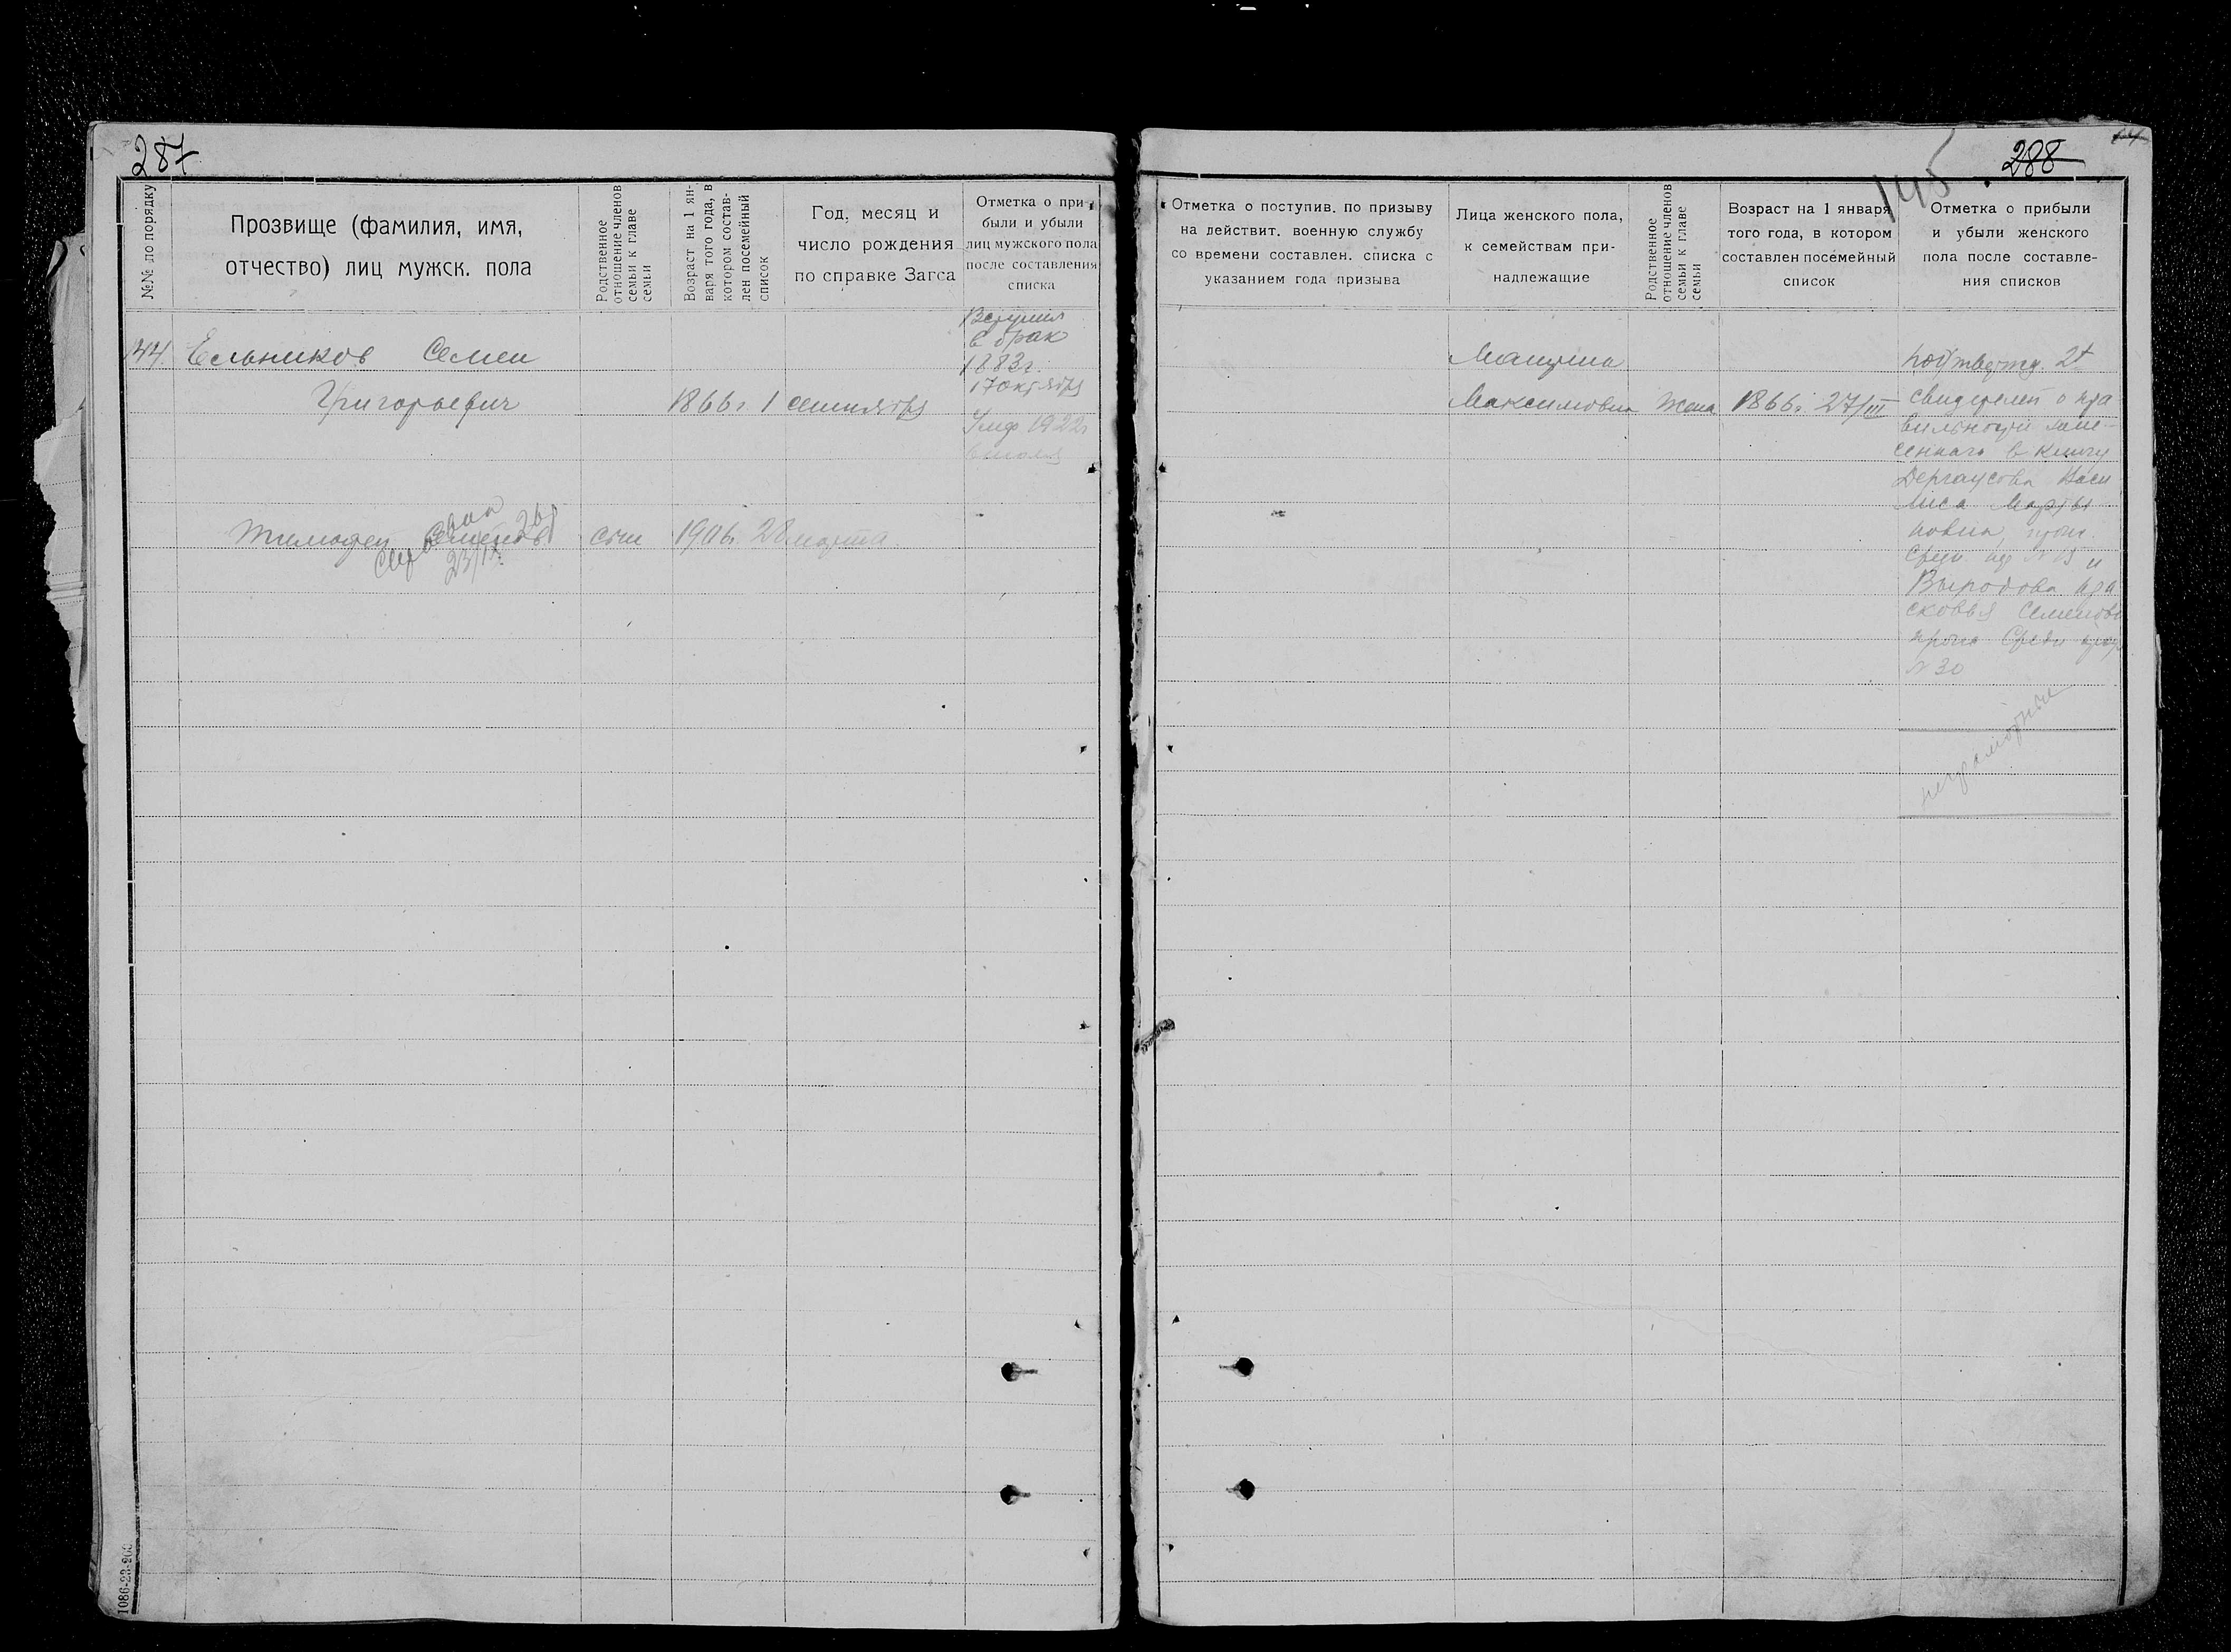 287
№№ по порядку
Прозвище (фамилия, имя,
отчество) лиц мужск. пола
Родственное
отношение членов
семьи к главе
семьи
Возраст на 1 ян-
варя того года, в
котором состав-
лен посемейный
список
Год, месяц и
число рождения
по справке Загса
Отметка о при-
были и убыли
лиц мужского пола
после составления
списка
144. Ельников Семен
Григорьевич 1866 г 1 сентября
Вступил
в брак
1883 г.
17 октября
Умер 1922 г
Тимофей Семенов. сын 1906. 28 марта.
23/IX
1086-23-200
288
145
Отметка о поступив. по призыву
на действит. военную службу
со времени составлен. списка с
указанием года призыва
Лица женского пола,
к семействам при-
надлежащие
Родственное
отношение членов
семьи к главе
семьи
Возраст на 1 января
того года, в котором
составлен посемейный
список
Отметка о прибыли
и убыли женского
пола после составле-
ния списков
Максимовна Жена 1866 г. 27/III
подтвержд. 2х
свидетелей о пра
вильности зане-
сенного в книгу
Васи
лиса Марты
новна
Выродова Пра
сковья Семенов
№ 30
неграмотные